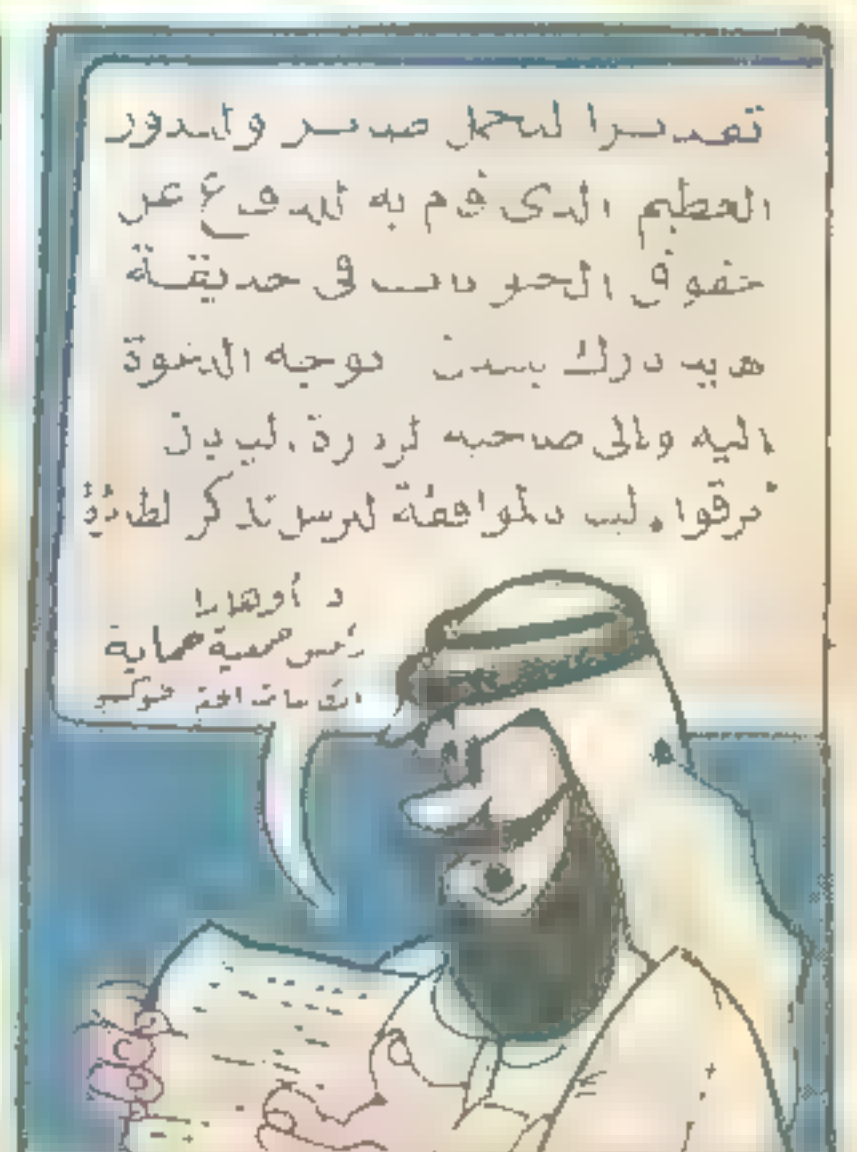 تقديرا للجمل صابر وللدور
العظيم الذى قام به للدفاع عن
حقوق الحيوانات فى حديقة
هايد بارك بلندن نوجه الدعوة
اليه والى صاحبه لزيارة
ابرقوا بالموافقة لنرسل تذاكر الطائرة
د. أوهارا
رئيس جمعية حماية